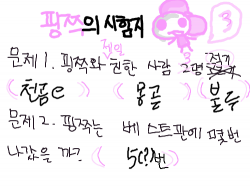 핑쯔의 시험지 3
문제 1. 핑쯔와 제일 친한 사람 3명 적기
(천품e) (몽곧) (불두)
문제 2. 핑쯔는 베스트판에 몇번
나갔을까? (50?번)